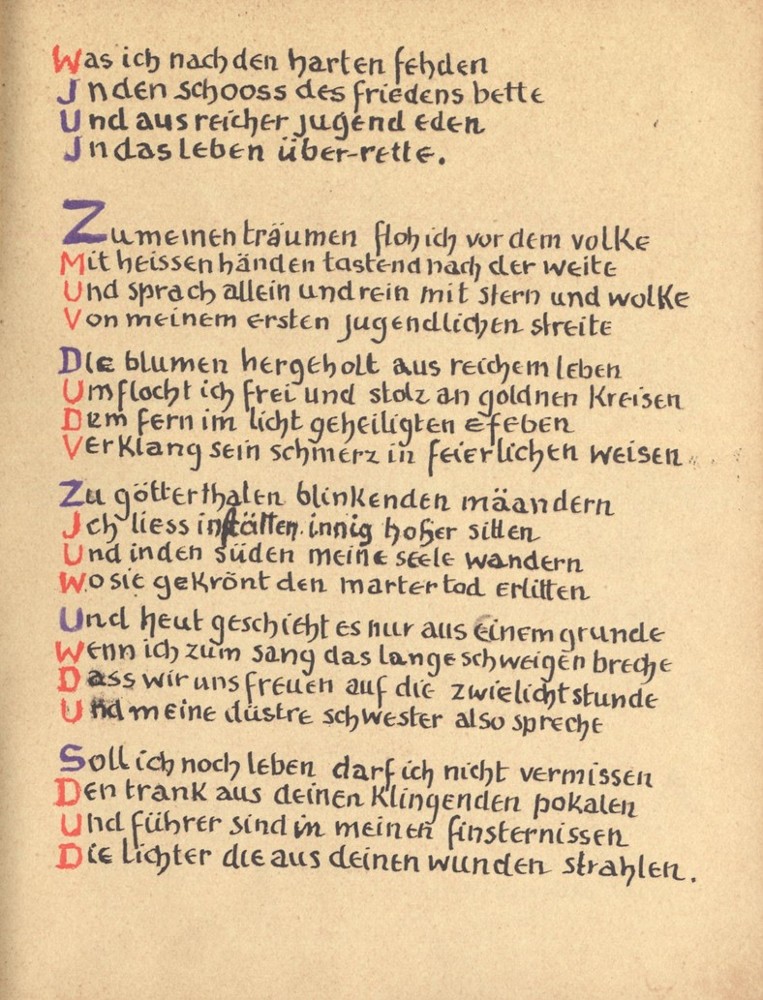 Was ich nach den harten fehden
Jn den schooss des friedens bette
Und aus reicher jugend eden
Jn das leben über-rette.
Zu meinen träumen floh ich vor dem volke
Mit heissen händen tastend nach der weite
Und sprach allein und rein mit stern und wolke
Von meinem ersten jugendlichen streite
Die blumen hergeholt aus reichem leben
Umflocht ich frei und stolz an goldnen kreisen
Dem fern im licht geheiligten efeben
Verklang sein schmerz in feierlichen weisen
Zu götterthalen blinkenden mäandern
Jch liess in stätten innig hoher sitten
Und in den süden meine seele wandern
Wo sie gekrönt den martertod erlitten
Und heut geschieht es nur aus einem grunde
Wenn ich zum sang das lange schweigen breche
Dass wir uns freuen auf die zwielichtstunde
Und meine düstre schwester also spreche
Soll ich noch leben darf ich nicht vermissen
Den trank aus deinen klingenden pokalen
Und führer sind in meinen finsternissen
Die lichter die aus deinen wunden strahlen.